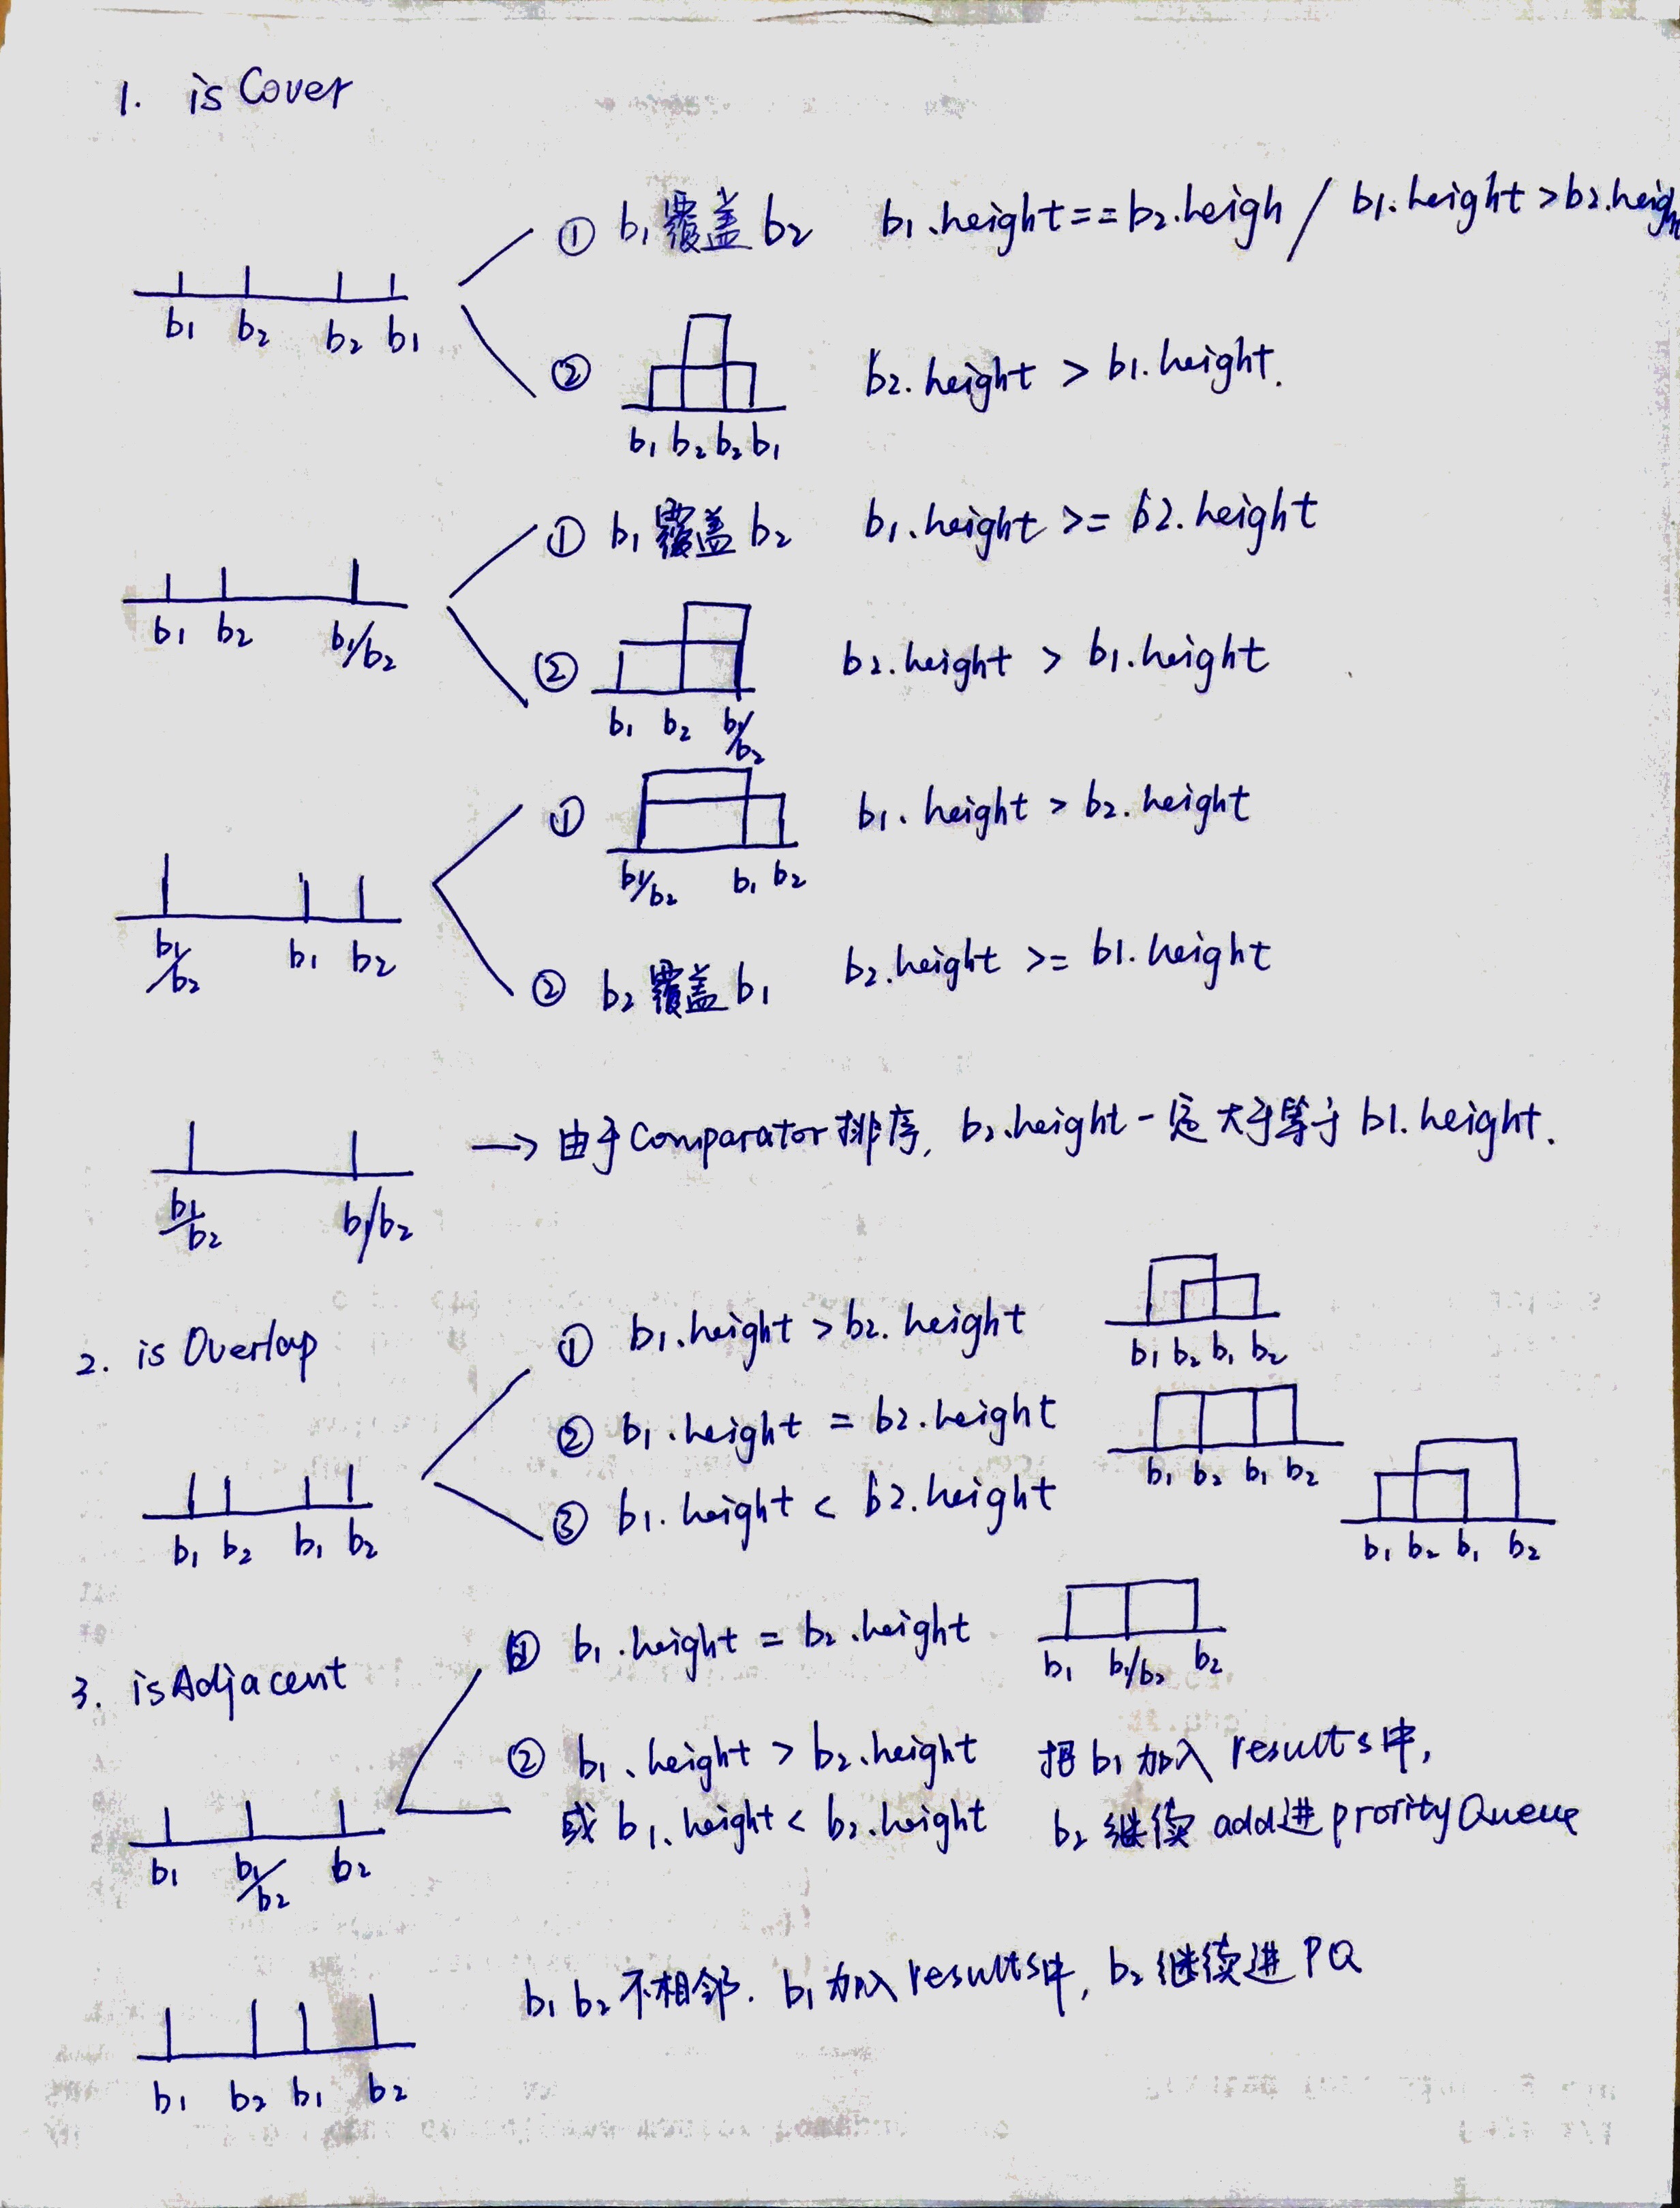 1. isCover
① b1覆盖b2 b1.height==b2.heigh / b1.height>b2.heigh
b1 b2 b2 b1
② b2.height > b1.height.
b1 b2 b2 b1
① b1覆盖b2 b1.height >= b2.height
b1 b2 b1/b2
② b2.height > b1.height
b1 b2 b1/b2
① b1.height > b2.height
b1/b2 b1 b2
b1/b2 b1 b2
② b2覆盖b1 b2.height >= b1.height
→ 由于Comparator排序, b2.height一定大于等于b1.height.
b1/b2 b1/b2
2. isOverlap
① b1.height > b2.height
b1 b2 b1 b2
② b1.height = b2.height
b1 b2 b1 b2
③ b1.height < b2.height
b1 b2 b1 b2
b1 b2 b1 b2
3. isAdjacent
① b1.height = b2.height
b1 b1/b2 b2
② b1.height > b2.height 把b1加入results中,
或b1.height < b2.height b2继续add进prorityQueue
b1 b1/b2 b2
b1 b2不相邻. b1加入results中, b2继续进PQ
b1 b2 b1 b2